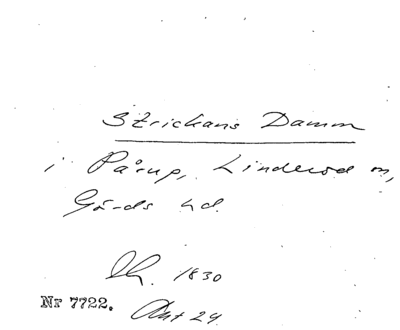 Strickans Damm
i Pårup, Linderöd sn,
Gärds hd.
Lh. 1830
Nr 7722. Akt 29